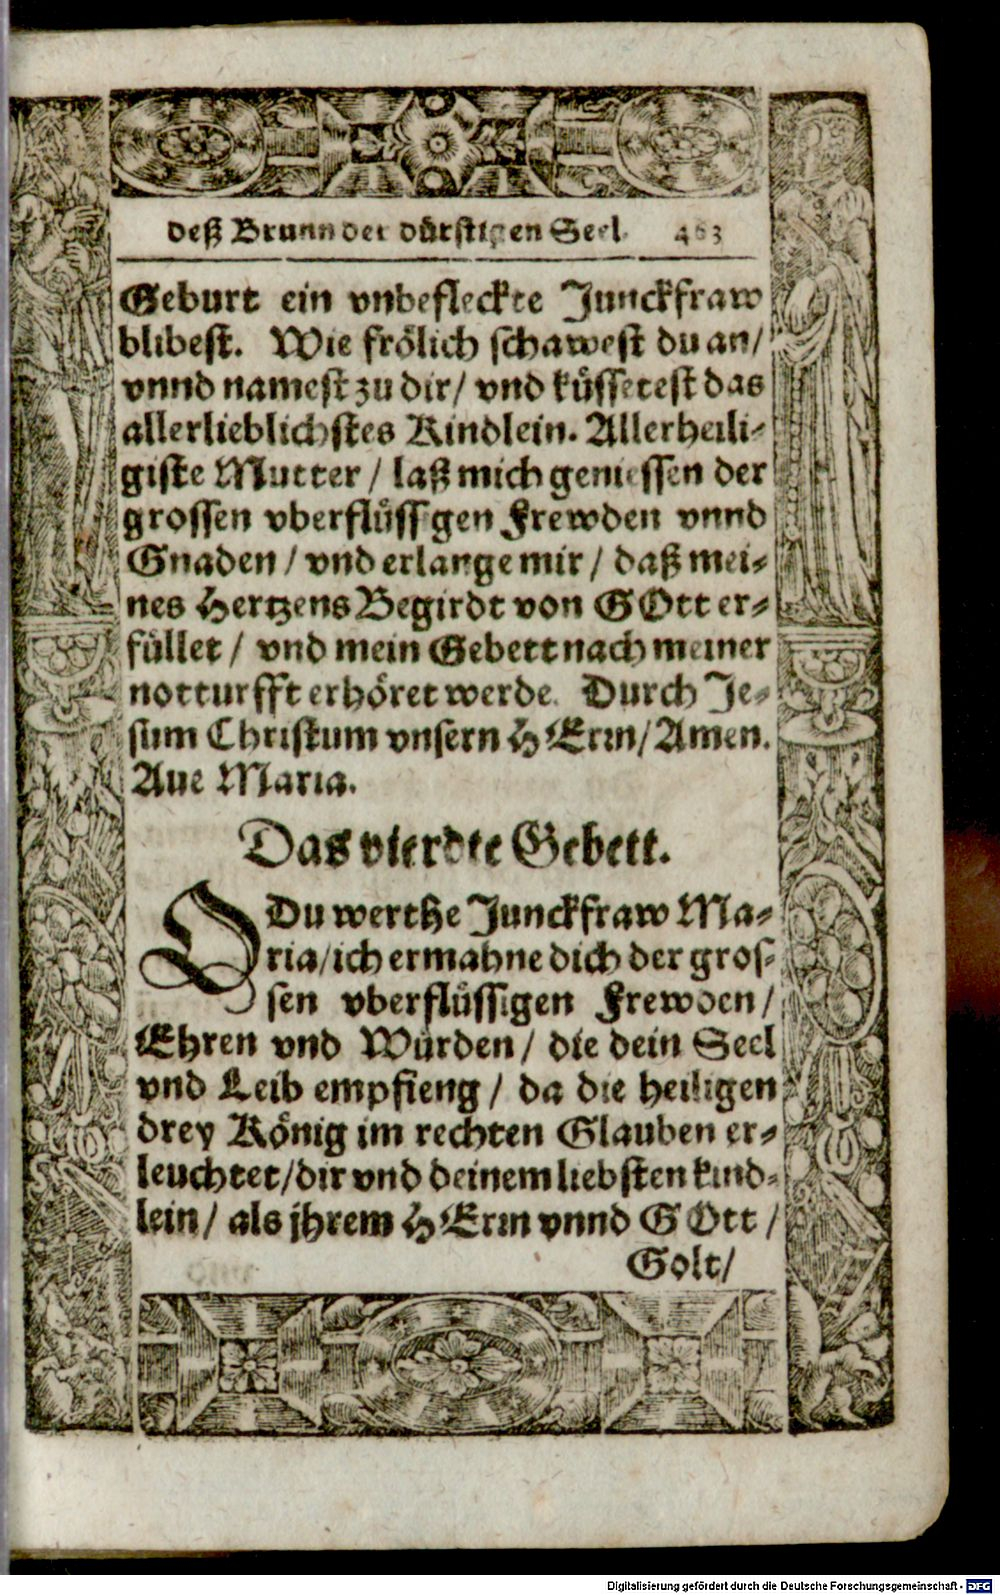 deß Brunn der dürstigen Seel. 463
Geburt ein vnbefleckte Junckfraw
blibest. Wie frölich schawest du an/
vnnd namest zu dir/ vnd küssetest das
allerlieblichstes Kindlein. Allerheili-
giste Mutter / laß mich geniessen der
grossen vberflüssigen Frewden vnnd
Gnaden / vnd erlange mir / daß mei-
nes Hertzens Begirdt von GOtt er-
füllet / vnd mein Gebett nach meiner
notturfft erhöret werde. Durch Je-
sum Christum vnsern HErrn/ Amen.
Aue Maria.
Das vierdte Gebett.
O Du werthe Junckfraw Ma-
ria/ ich ermahne dich der gros-
sen vberflüssigen Frewden /
Ehren vnd Würden / die dein Seel
vnd Leib empfieng / da die heiligen
drey König im rechten Glauben er-
leuchtet/ dir vnd deinem liebsten kind-
lein/ als jhrem HErrn vnnd GOtt /
Golt/
Digitalisierung gefördert durch die Deutsche Forschungsgemeinschaft - DFG